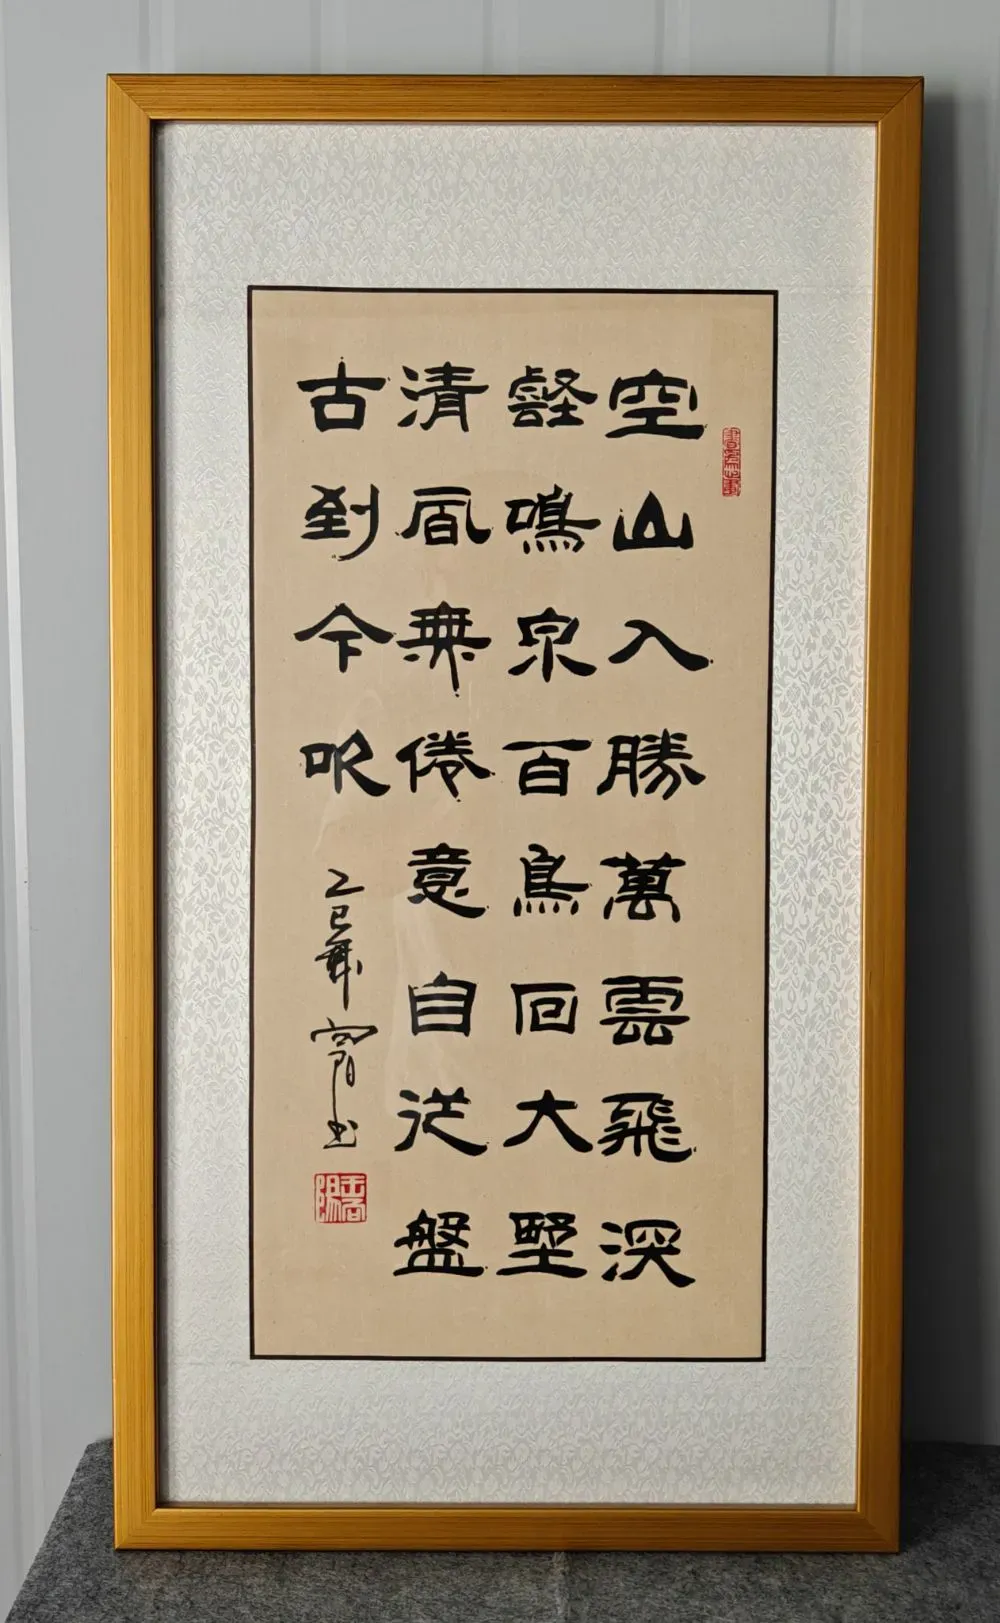 空山入勝萬雲飛深
壑鳴泉百鳥回大野
清風無倦意自從盤
古到今吹
乙巳年 向阳书